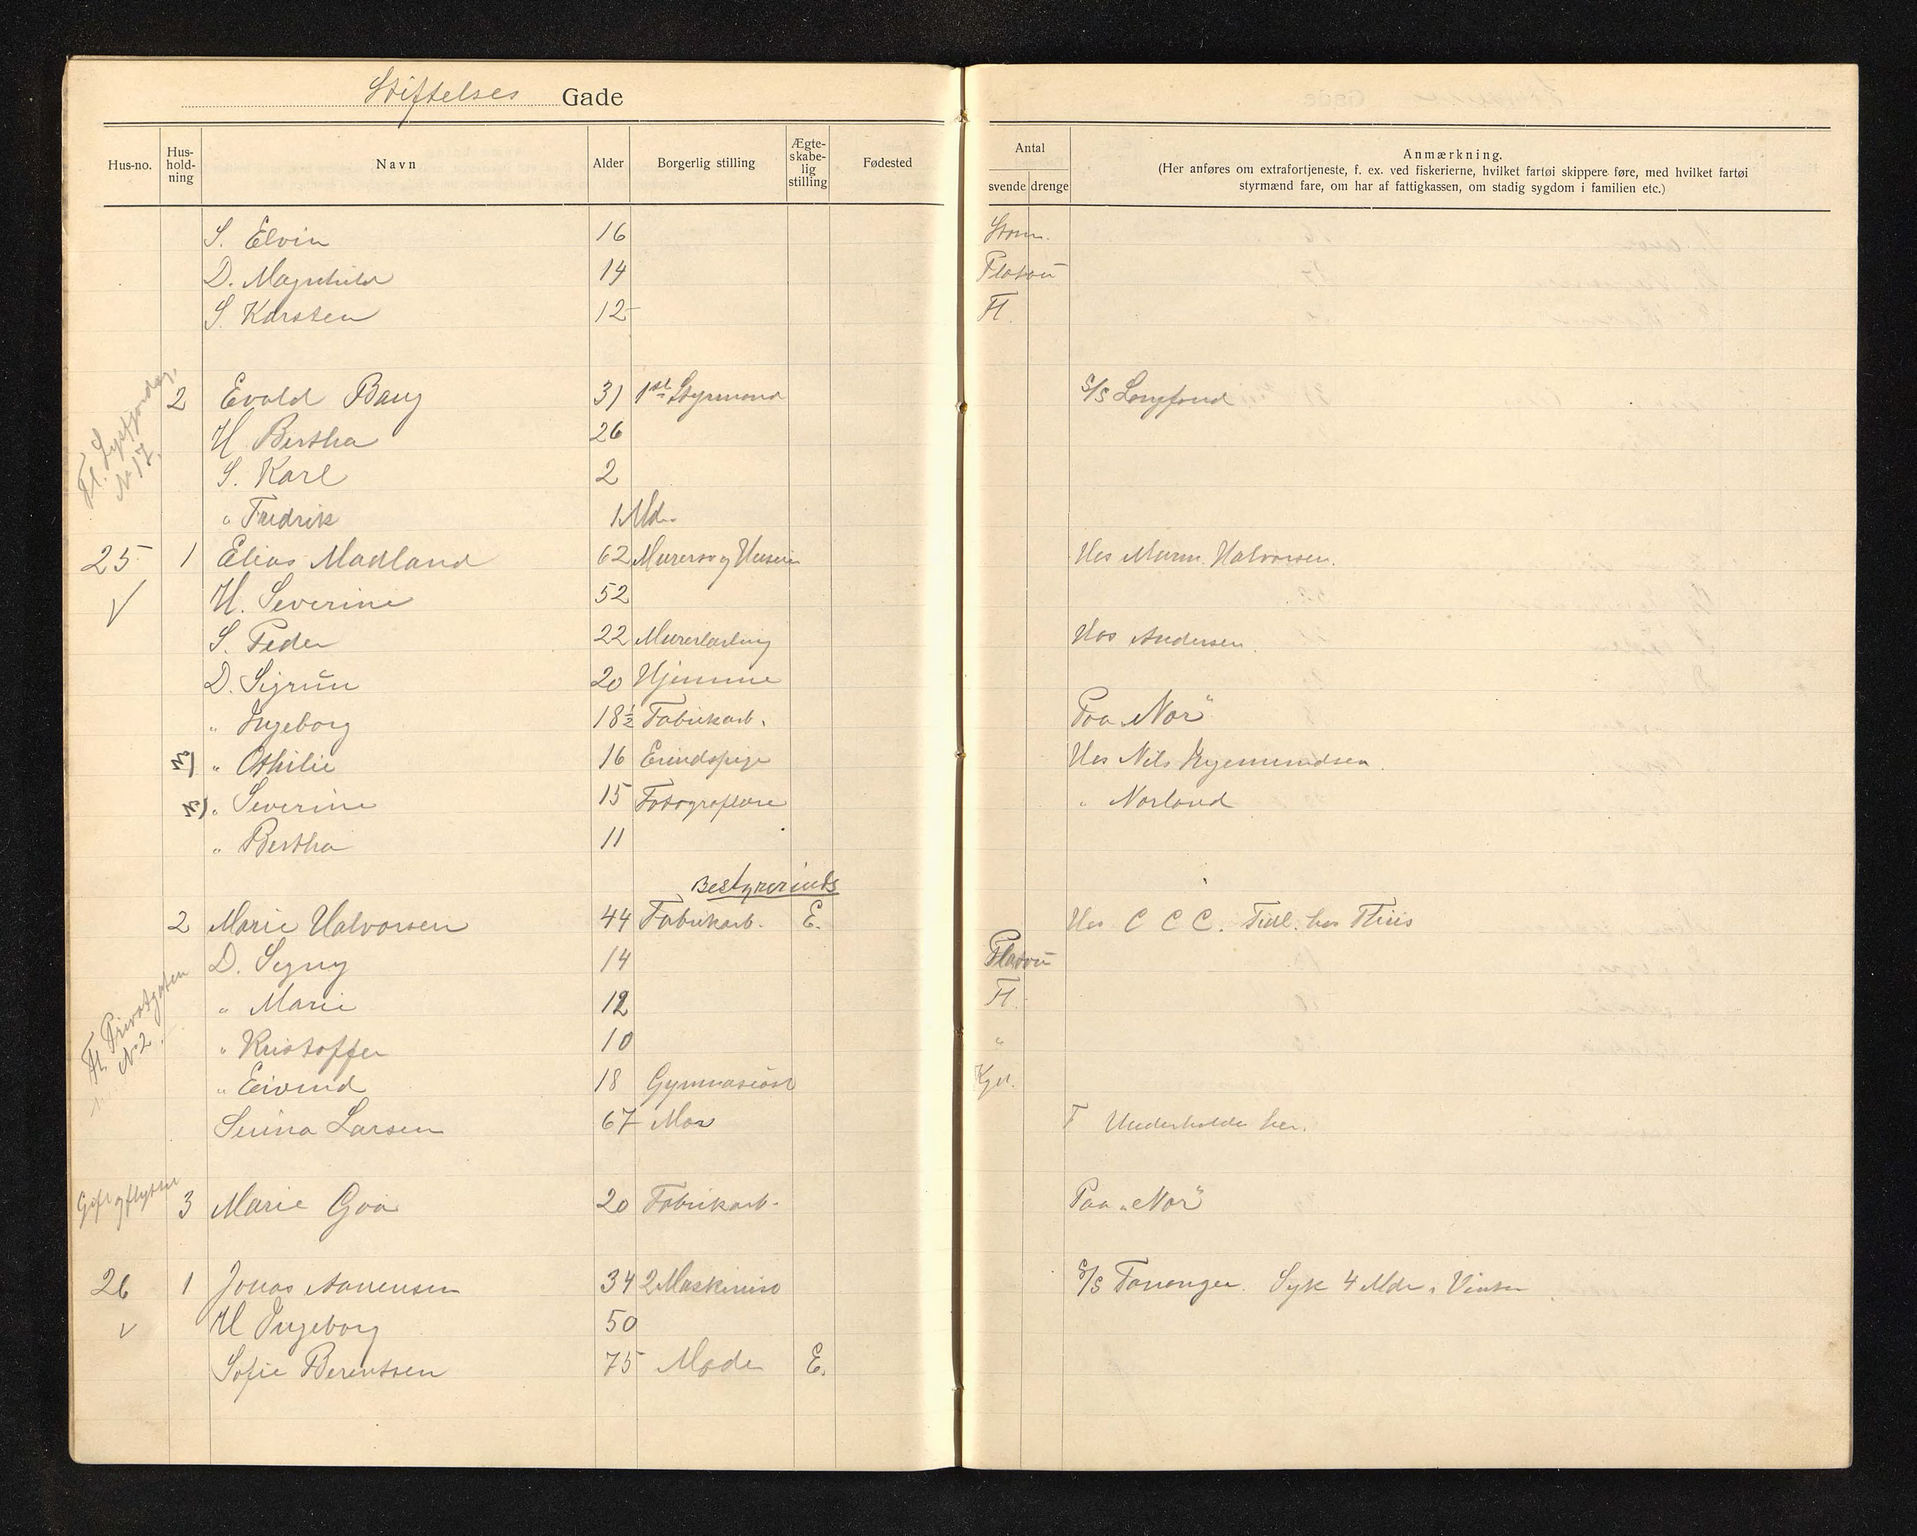 Stiftelses Gade
Hus-no. Hus-hold-ning Navn Alder Borgerlig stilling Ægte-skabe-lig stilling Fødested Antal svende drenge Anmærkning.
(Her anføres om extrafortjeneste, f. ex. ved fiskerierne, hvilket fartøi skippere føre, med hvilket fartøi
styrmænd fare, om har af fattigkassen, om stadig sygdom i familien etc.)
S. Elvin 16 Storm.
D. Magnhild 14 Platou
S. Karsten 12 Fl.
Fl. Lysefjordsg. No 17.
2 Evald Bang 31 1st Styrmand S/S
H Bertha 26
S. Karl 2
" Fredrik 1 Md.
25 1 Elias Madland 62 Hos Murm. Halvorsen.
√ H. Severine 52
S. Peder 22 Murerlærling Hos Andersen.
D. Sigrun 20 Hjemme
" Ingeborg 18½ Fabrikarb. Paa "Nor"
" Othilie 16 Erindspige Hos Nils
" Severine 15 " Norland
" Bertha 11
Bestyrerinds
2 Marie Halvorsen 44 Fabrikarb. E. Hos C C C. Tidl. hos Thiis
Fl. Privatgaten No 2
D. Signy 14 Platou
" Marie 12 Fl.
" Kristoffer 10 "
" Eivind 18 Gymnasiast
Serina Larsen 67 Mor Underholdes her.
Gift og flyttet 3 Marie Goa 20 Fabrikarb. Paa "Nor"
26 1 Jonas Aanensen 34 2 Maskinist S/S Syk 4 Mdr i Vinter
√ H Ingeborg 50
Sofie Berentsen 75 Moder E.